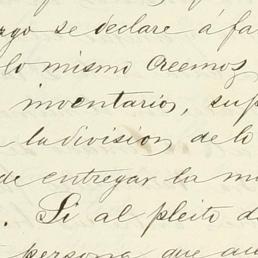 rgo se declare á fa
lo mismo creemos
inventarios, sup
la division de lo
de entregar la m
. Si al pleito d
persona que au